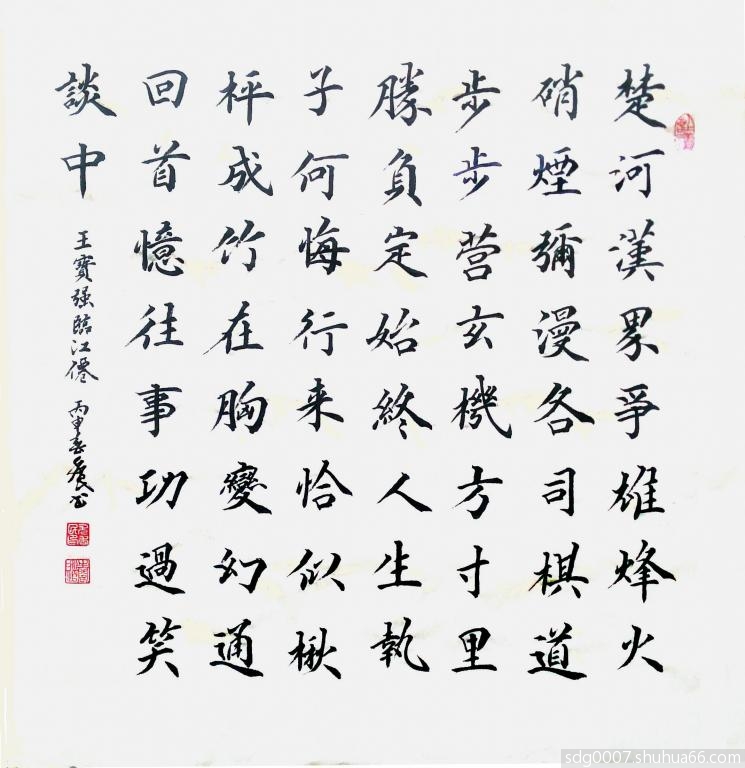 楚河漢界爭雄烽火
硝煙彌漫各司棋道
步步营玄機方寸里
勝負定始終人生執
子何悔行来恰似楸
枰成竹在胸變幻通
回首憶往事功過笑
談中
王寶强臨江僊
丙申春
sdg0007.shuhua66.com